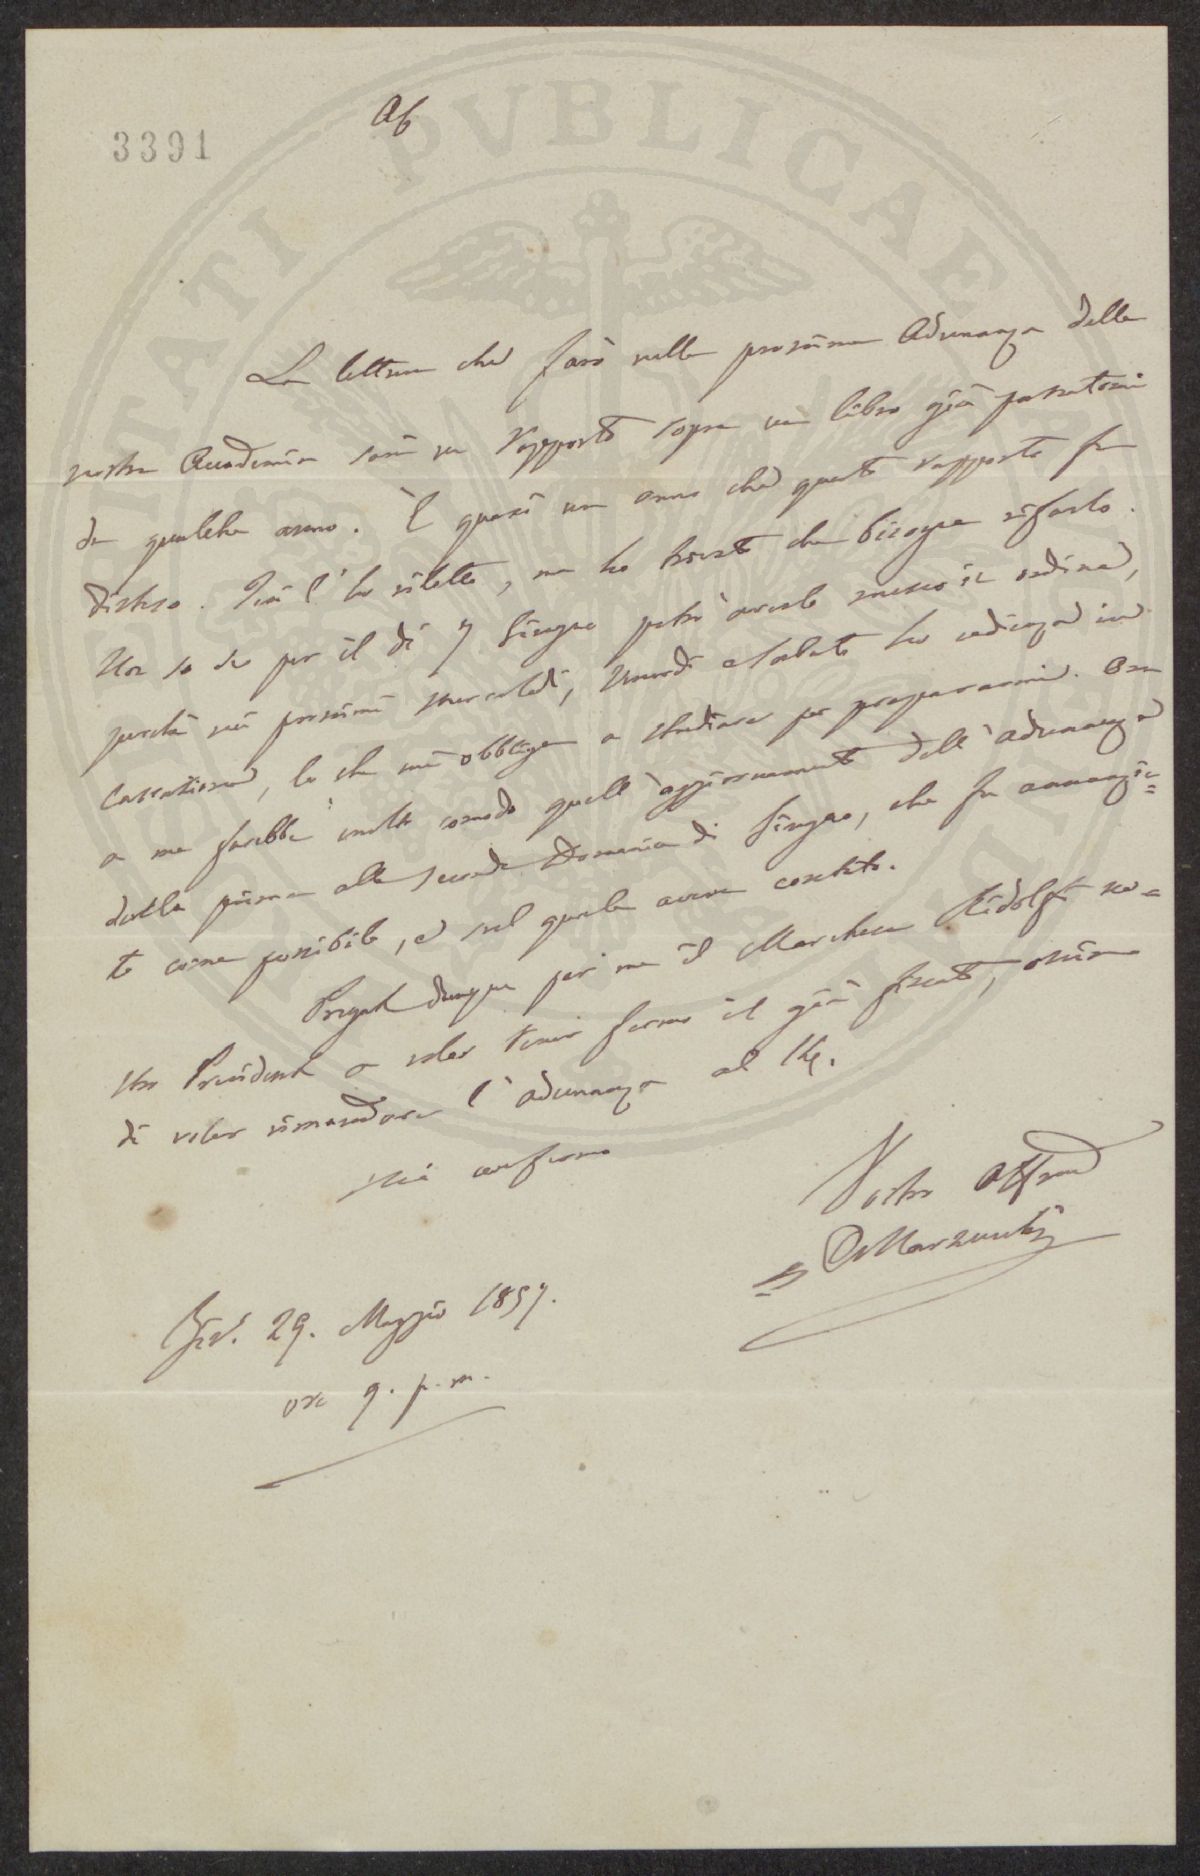 3391
A C
La lettura che farò nella prossima Adunanza della
nostra Accademia sarà un Rapporto sopra un libro già passatomi
da qualche anno. È quasi un anno che questo rapporto fu
disteso. Ieri l'ho riletto, ma ho trovato che bisogna rifarlo.
Non so se per il dì 7 Giugno potrò averlo messo in ordine,
perchè nei prossimi Mercoledì, Venerdì e Sabato ho udienza in
Cassazione, lo che mi obbliga a studiare per prepararmi. Ora
a me farebbe molto comodo quell'aggiornamento dell'adunanza
dalla prima alla seconda Domenica di Giugno, che fu annunzia=
to come possibile, e sul quale avevo contato.
Pregate dunque per me il Marchese Ridolfi no=
stro Presidente a voler tener fermo il già fissato,
di voler rimandare l'adunanza al 14.
Mi confermo
Vostro Aff.mo
C Marzucchi
29. Maggio 1857.
ore 9. p. m.
PVBLICAE